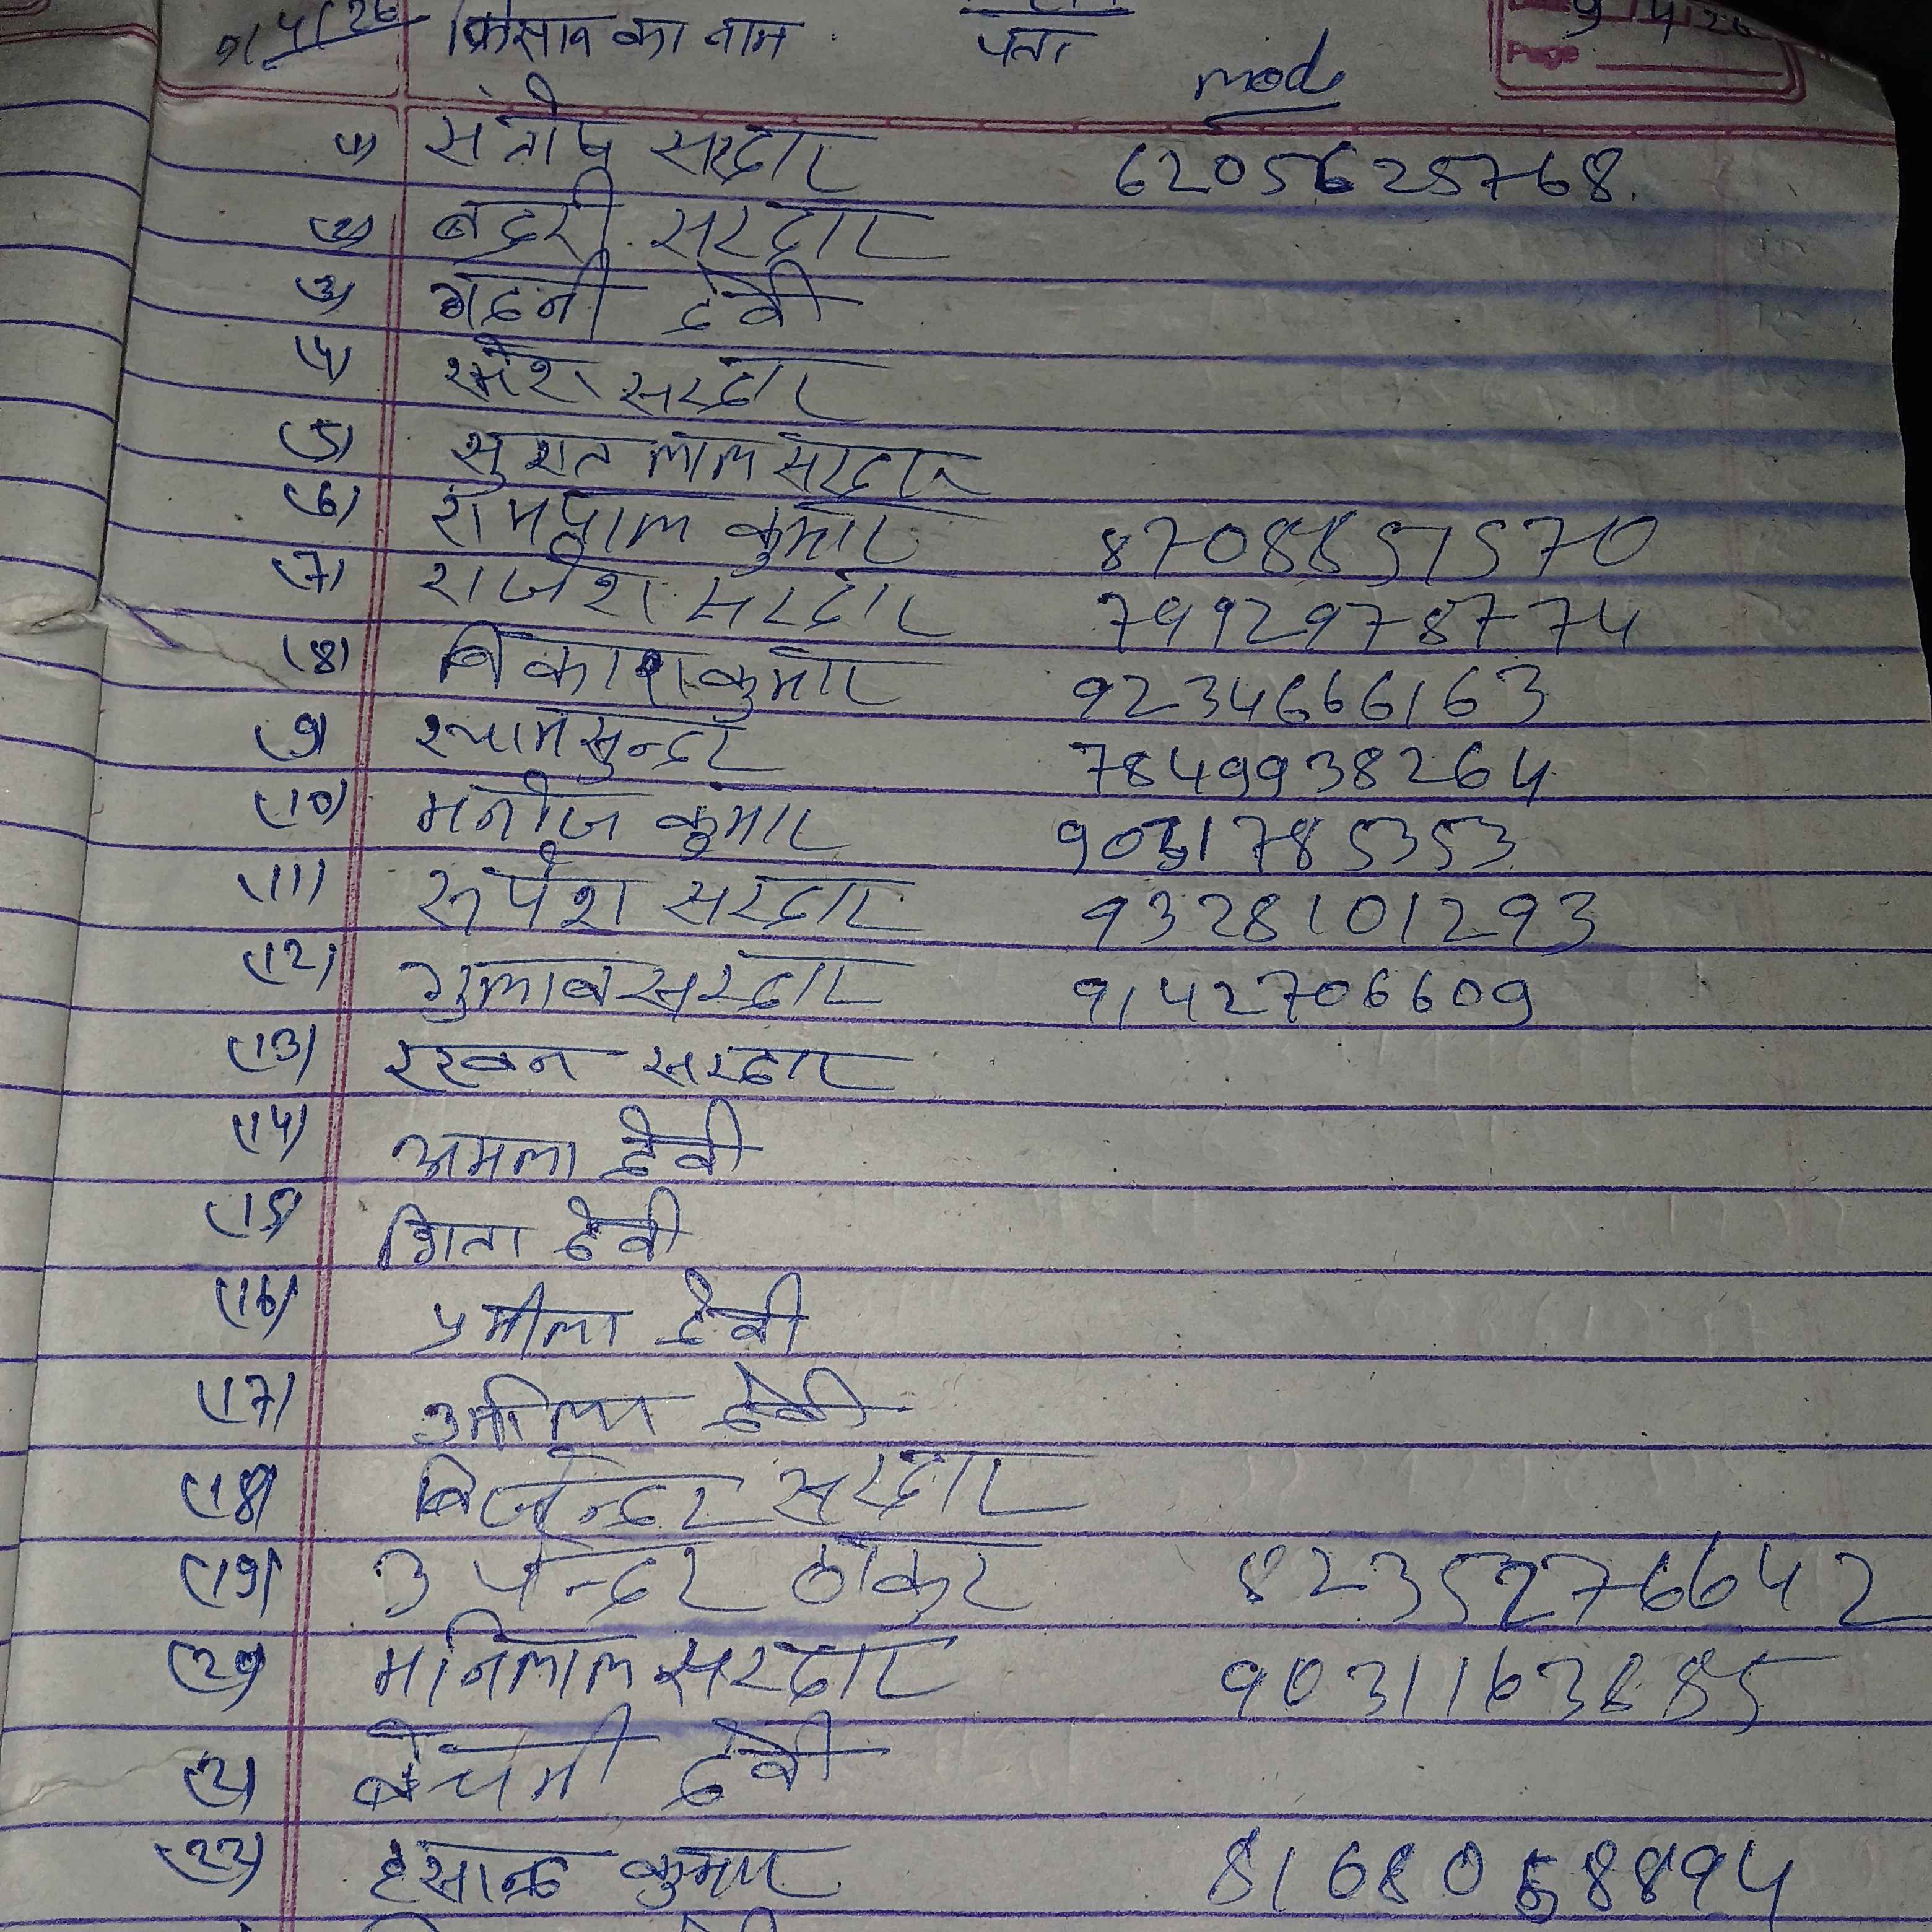 9/4/26 किसान का नाम पता 9/4/26
Page
mod
1) संतोष सरदार 6205625768
2) बद्ररी सरदार
3) गदनी देवी
4) रमेश सरदार
(5) सुरात लाल सरदार
(6) रामपाल कुमार 8708851570
(7) राजेश सरदार 7992978774
(8) विकाश कुमार 9234666163
(9) श्याम सुन्दर 7849938264
(10) मनोज कुमार 9031785353
(11) रूपेश सरदार 9328101293
(12) गुलाब सरदार 9142706609
(13) रखन सरदार
(14) अमला देवी
(15) गिता देवी
(16) प्रमीला देवी
(17) उर्मीला देवी
(18) बिजेन्दर सरदार
(19) उपेन्दर ठाकुर 8235276642
(20) मनिलाल सरदार 9031163885
(21) बेचनी देवी
(22) कुमार